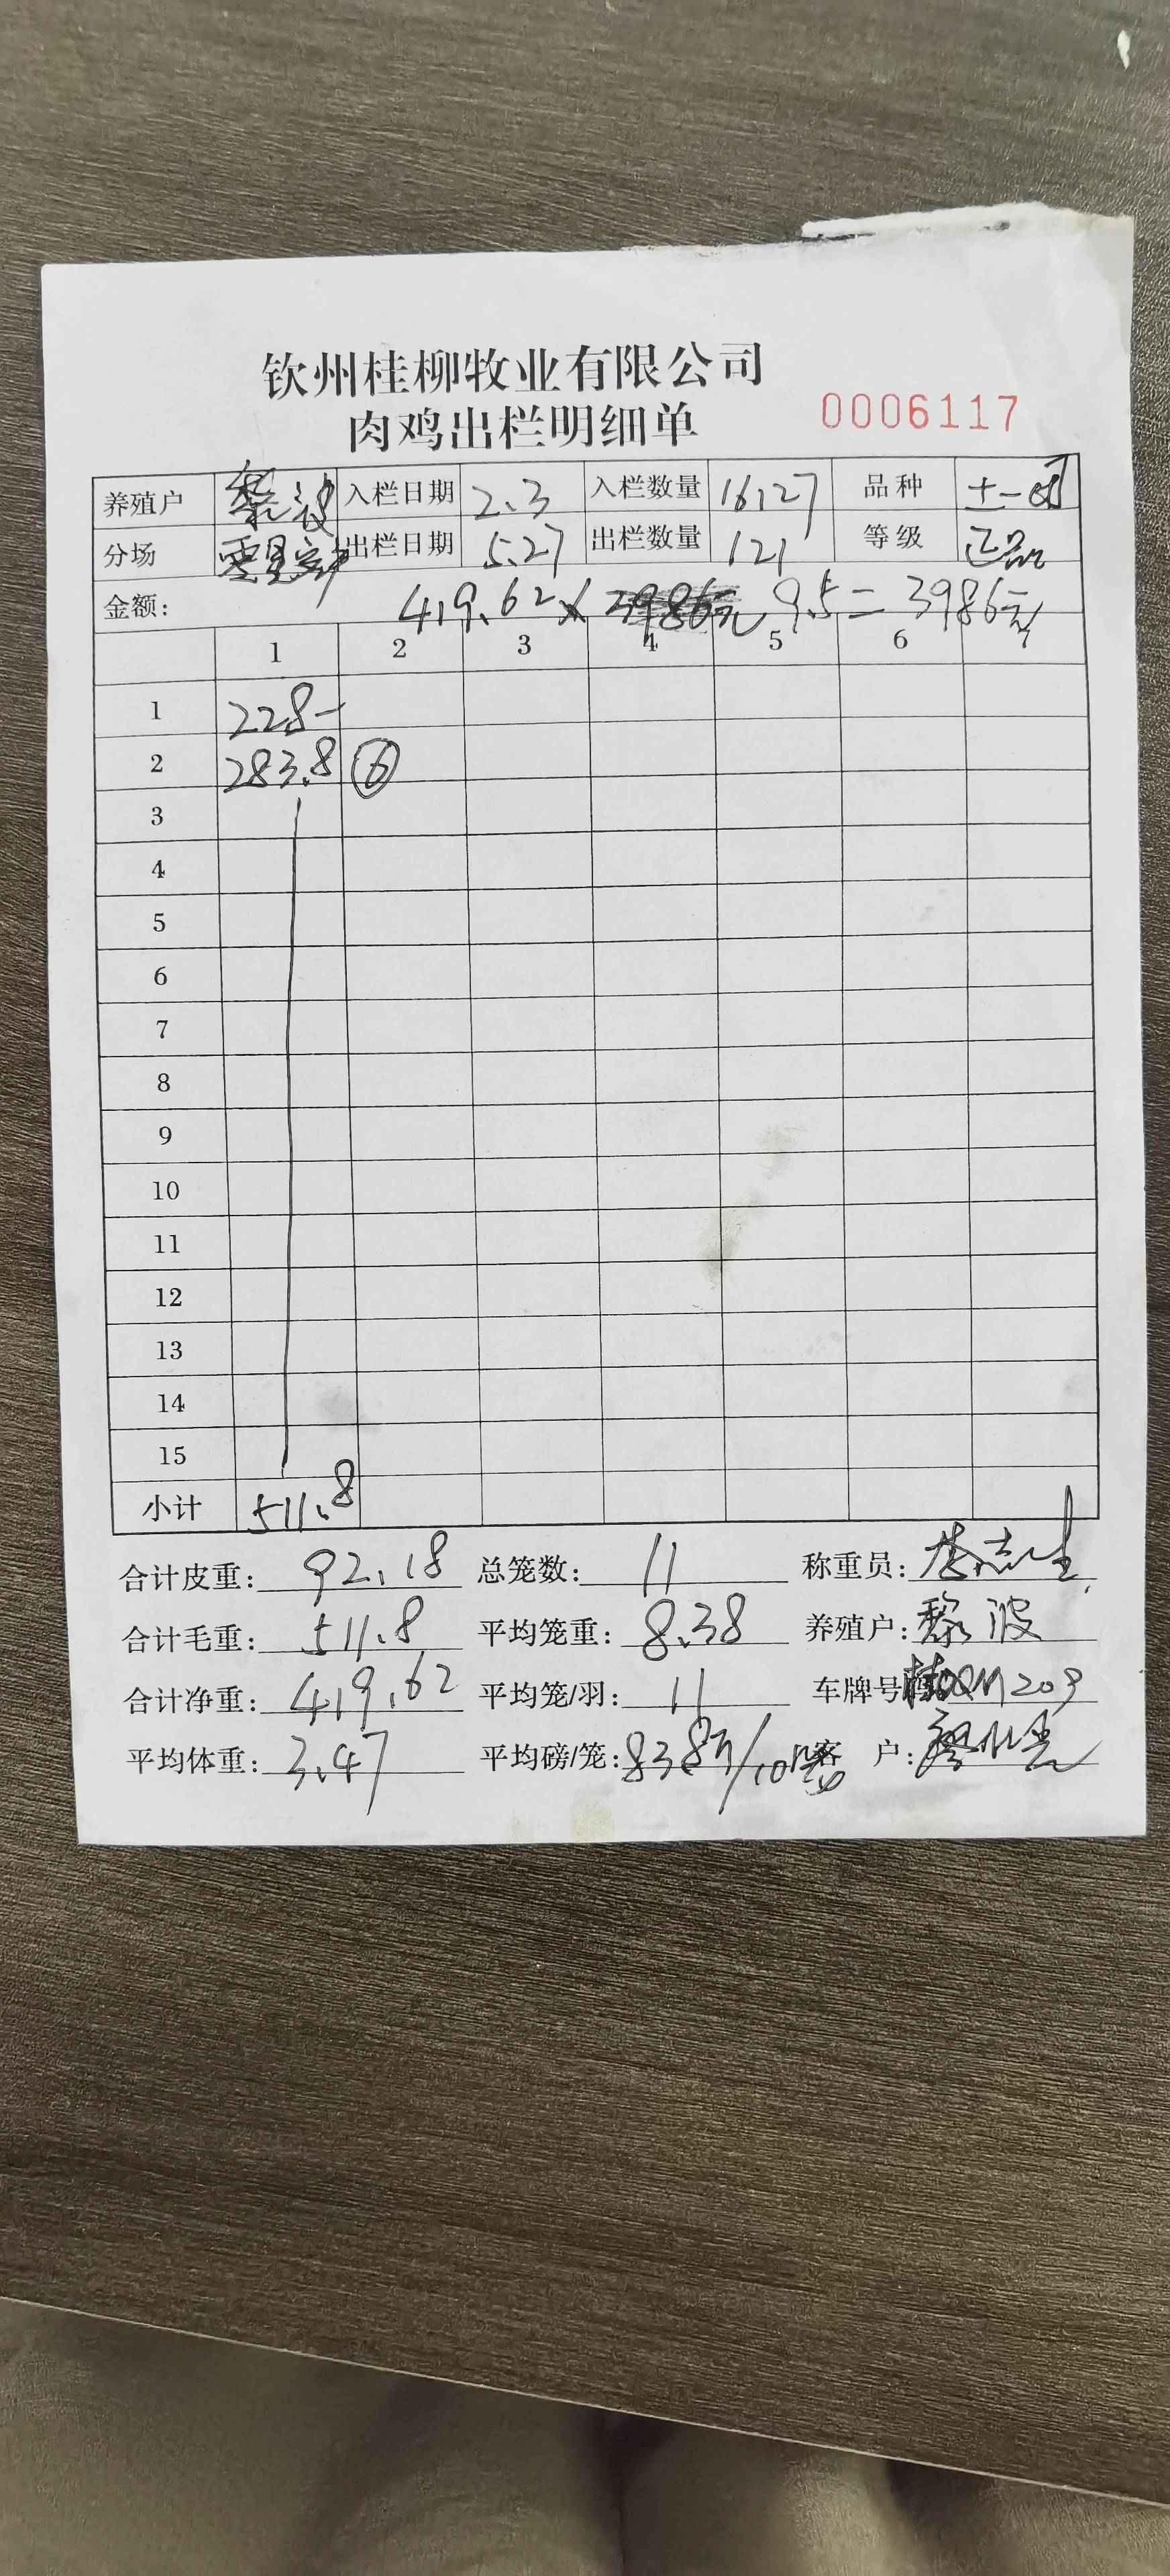 钦州桂柳牧业有限公司
肉鸡出栏明细单 0006117
养殖户 黎波 入栏日期 2.3 入栏数量 16127 品种 土一
分场 零星客户 出栏日期 5.27 出栏数量 121 等级 正品
金额: 419.62 × 9.5 = 3986元
1 2 3 4 5 6 7
1 228-
2 283.8 ⑥
3
4
5
6
7
8
9
10
11
12
13
14
15
小计 511.8
合计皮重: 92.18 总笼数: 11 称重员:
合计毛重: 511.8 平均笼重: 8.38 养殖户: 黎波
合计净重: 419.62 平均笼/羽: 11 车牌号
平均体重: 3.47 平均磅/笼: 83.8斤/10 客 户: